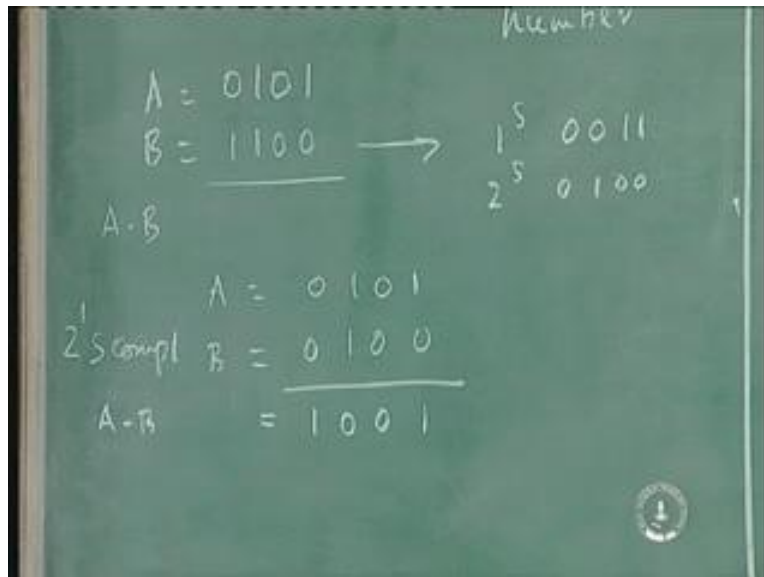 Number
A = 0101
B = 1100 → 1s 0011
2s 0100
A-B
A = 0101
2's compl B = 0100
A-B = 1001